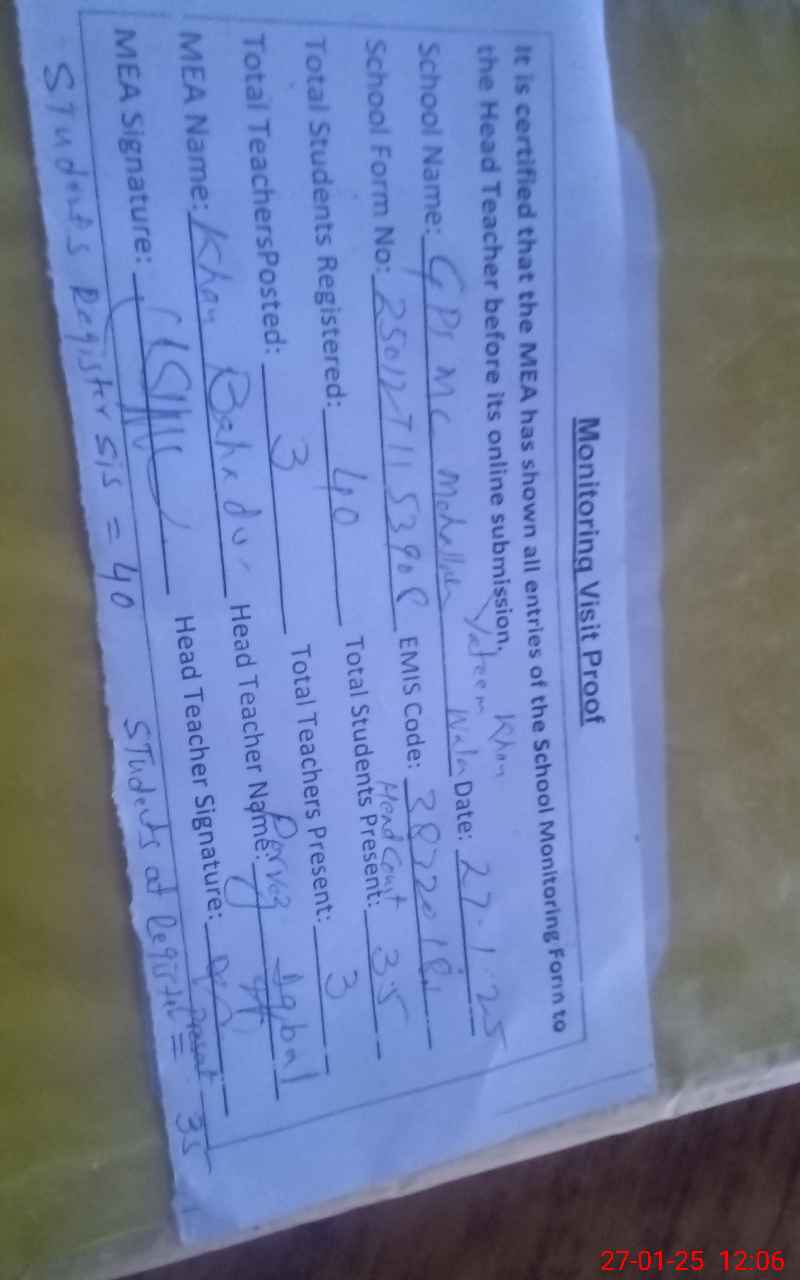 Monitoring Visit Proof
It is certified that the MEA has shown all entries of the School Monitoring Form to
the Head Teacher before its online submission.
Khan
School Name: GPS MC Mohallah Yateem Wala Date: 27.1.25
School Form No: EMIS Code:
Total Students Registered: 40 Total Students Present: Head Count 35
Total TeachersPosted: 3 Total Teachers Present: 3
MEA Name: Khan Bahadur Head Teacher Name: Pervez Iqbal
MEA Signature: Head Teacher Signature:
Students Register sis = 40 Students at Register = Present 35
27-01-25 12:06